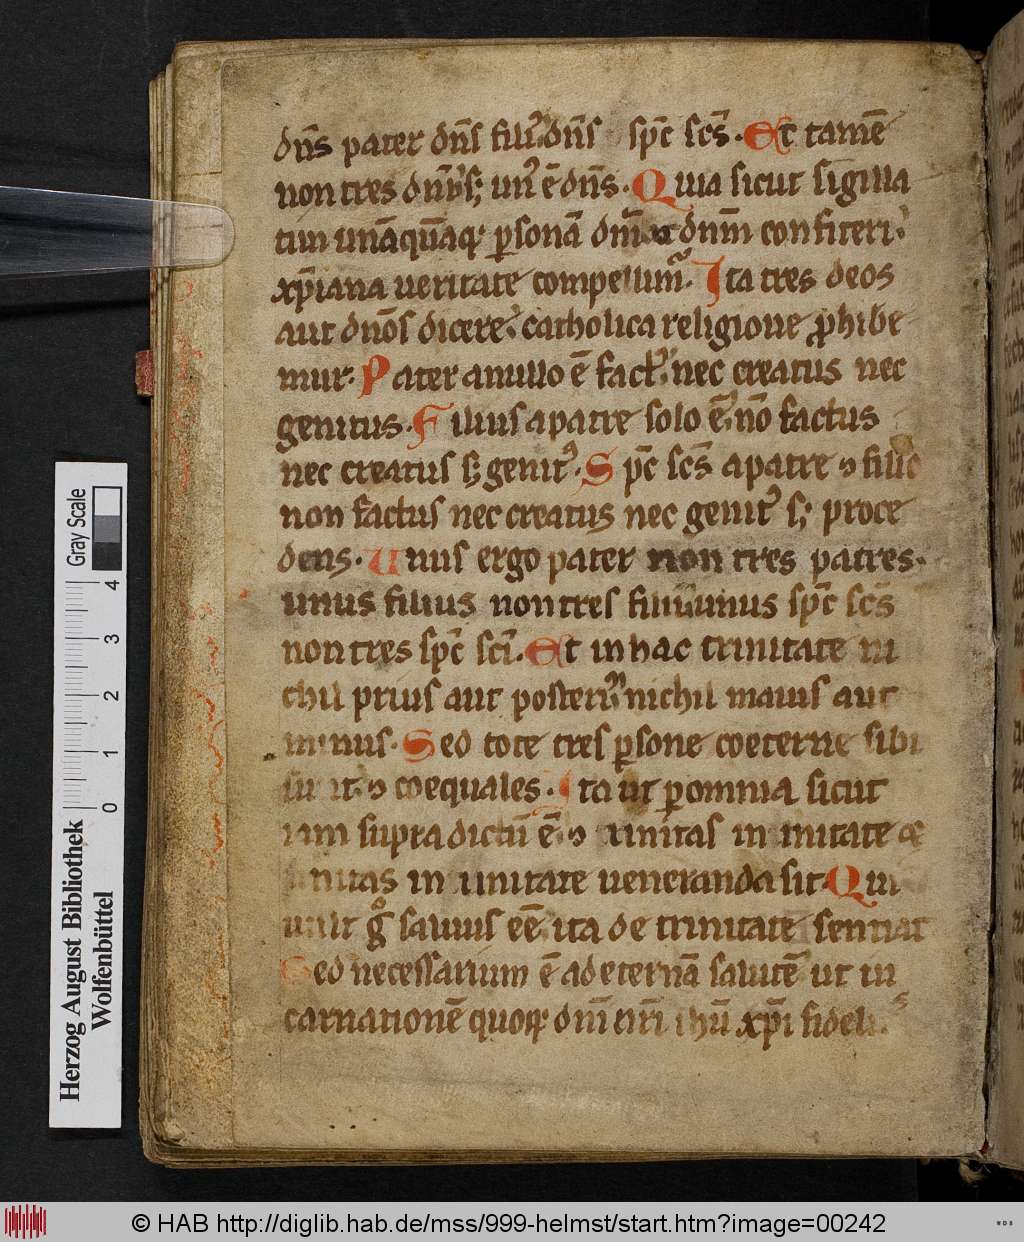 dn̄s pater dn̄s filiꝰ dn̄s sp̄c sc̄s. Et tamē
non tres dn̄i s; unꝰ ē dn̄s. Quia sicut sigilla
tim unāquāqꝫ ꝑsonā dm̄ et dnm̄ confiteri
xp̄iana ueritate compellimꝰ. Ita tres deos
aut dn̄os dicere catholica religione ꝓhibe
mur. Pater a nullo ē factꝰ nec creatus nec
genitus. Filius a patre solo ē nō factus
nec creatus s; genitꝰ. Sp̄c sc̄s a patre ⁊ filio
non factus nec creatus nec genitꝰ s; proce
dens. Unus ergo pater non tres patres.
unus filius non tres filii unus sp̄c sc̄s
non tres sp̄c sc̄i. Et in hac trinitate ni
chil prius aut posteriꝰ nichil maius aut
minus. Sed tote tres ꝑsone coeterne sibi
sunt ⁊ coequales. Ita ut ꝑ omnia sicut
iam supra dictū ē ⁊ trinitas in unitate et
unitas in trinitate ueneranda sit. Qui
uult gͦ saluus eē ita de trinitate sentiat
Sed necessarium ē ad eternā salutē ut in
carnationē quoqꝫ dn̄i nr̄i ihū xp̄i fideli
Herzog August Bibliothek
Wolfenbüttel
Gray Scale
0 1 2 3 4
© HAB http://diglib.hab.de/mss/999-helmst/start.htm?image=00242